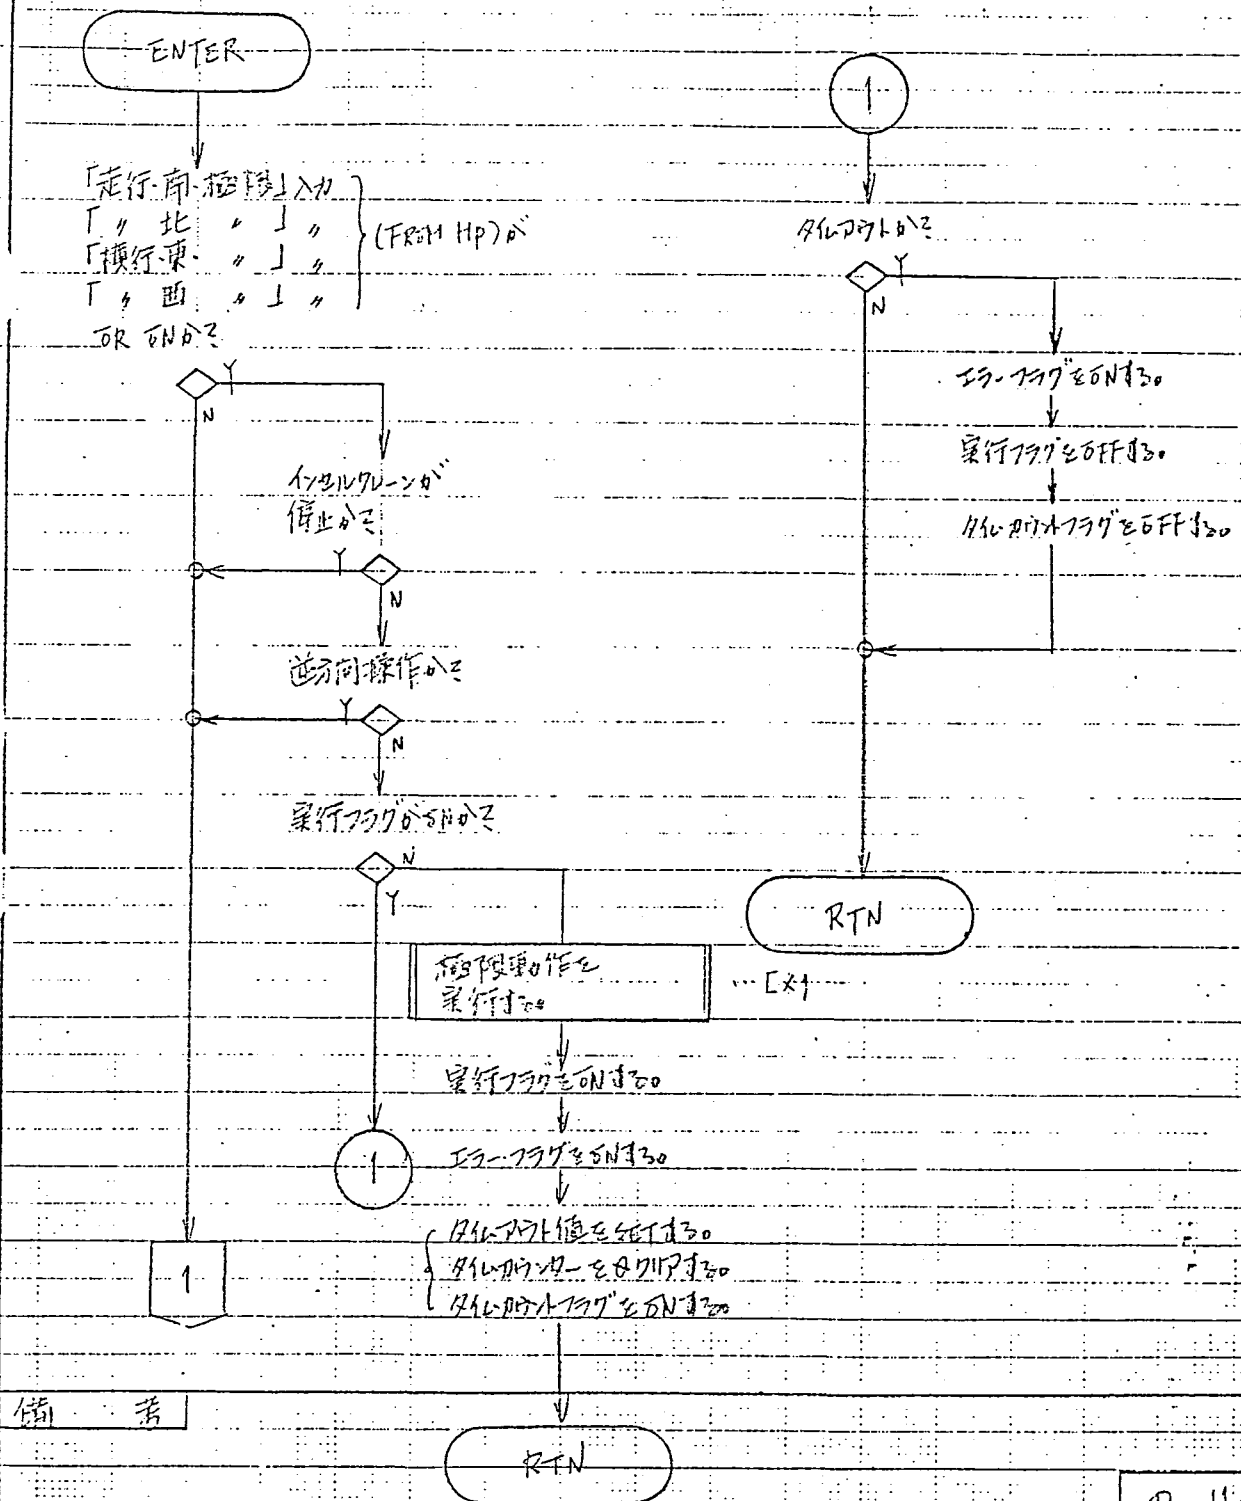 ENTER
「走行・南・極限」入力
「 〃 北 〃 」 〃
「横行・東・ 〃 」 〃
「 〃 西 〃 」 〃
(FROM HP)が
OR ONか?
Y
N
インセルクレーンが
停止か?
Y
N
逆方向操作か?
Y
N
実行フラグがONか?
N
Y
極限動作を
実行する。
実行フラグをONする。
1
エラーフラグをONする。
タイムアウト値をSETする。
タイムカウンターを0クリアする。
タイムカウントフラグをONする。
1
RTN
1
タイムアウトか?
Y
N
エラーフラグをONする。
実行フラグをOFFする。
タイムカウントフラグをOFFする。
RTN
備 考